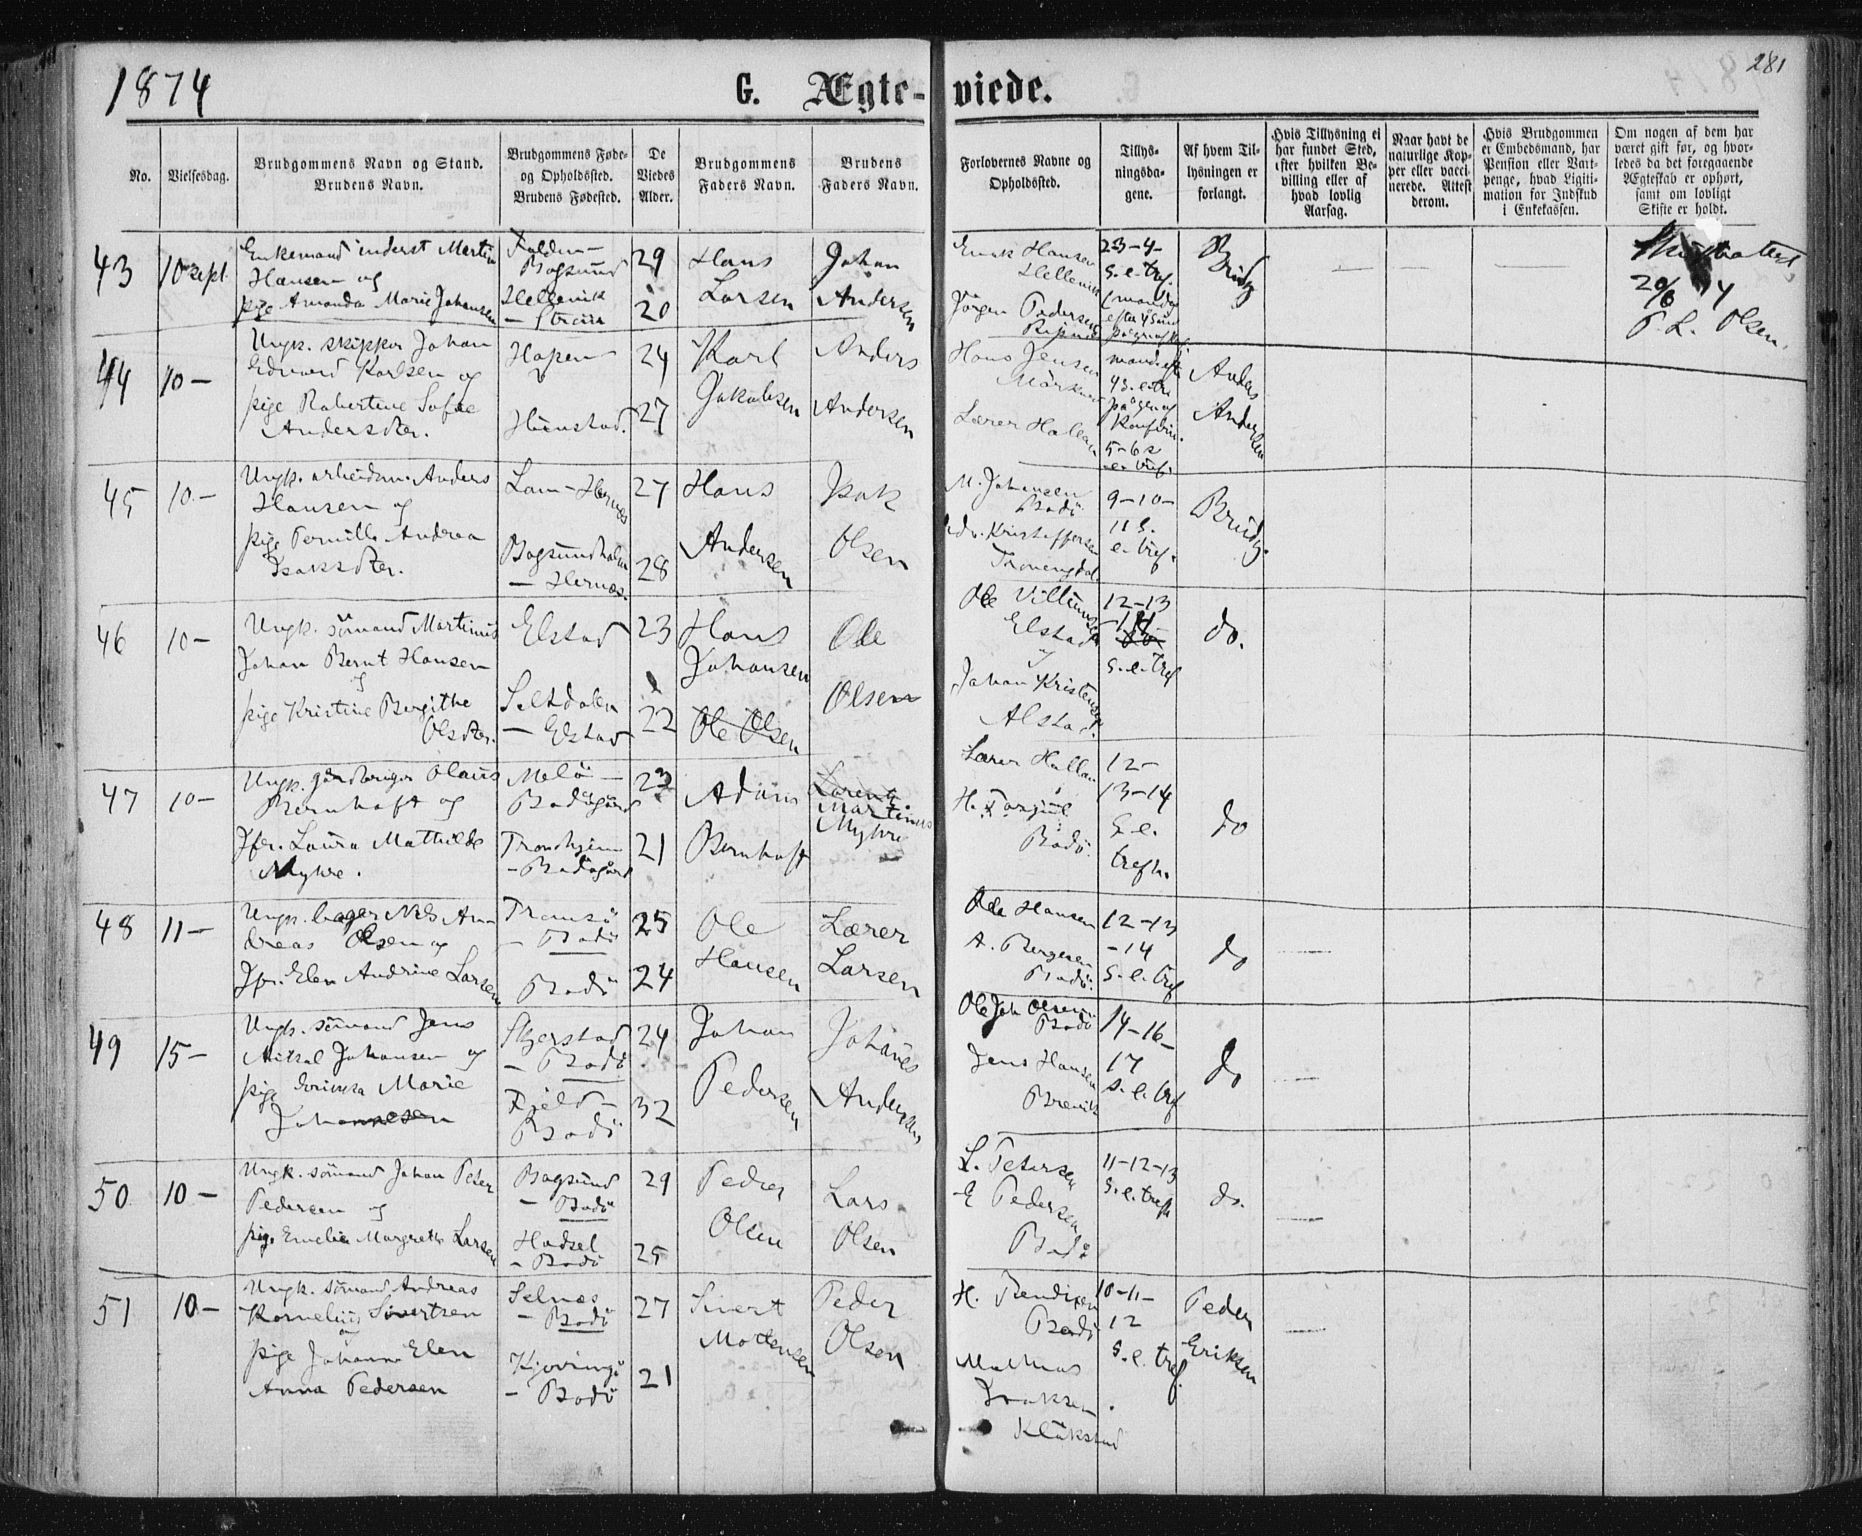 1874
G. Ægte-
viede.
281
No.
Vielsesdag.
Brudgommens Navn og Stand.
Brudens Navn.
Brudgommens Føde-
og Opholdssted.
Brudens Fødested.
De
Viedes
Alder.
Brudgommens
Faders Navn.
Brudens
Faders Navn.
Forlovernes Navne og
Opholdssted.
Tillys-
ningsda-
gene.
Af hvem Til-
lysningen er
forlangt.
Hvis Tillysning ei
har fundet Sted,
efter hvilken Be-
villing eller af
hvad lovlig
Aarsag.
Naar havt de
naturlige Kop-
per eller vacci-
nerede. Attest
derom.
Hvis Brudgommen
er Embedsmand, har
Pension eller Vart-
penge, hvad Legiti-
mation for Indskud
i Enkekassen.
Om nogen af dem har
været gift før, og hvor-
ledes da det foregaaende
Ægteskab er ophørt,
samt om lovligt
Skifte er holdt.
43
10 sept.
Enkemand inderst Martin
Hansen og
pige Amanda Marie Johansen
Folden-
Bogsund
Hellevik
29
20
Hans
Larsen
Johan
Andersen
Hansen
Hellevik
Jörgen Pedersen
23-4-
s.e.tref.
Brudg
P. L. Olsen.
44
10-
Ungk. skipper Johan
Edvard Karlsen og
pige Robertine Sofie
Andersdter.
Hopen
Hunstad.
24
27
Karl
Jakobsen
Anders
Andersen
Hans Jensen
Lærer Hallan
5-6 s
e. tref.
Anders
Andersen
45
10-
Ungk. arbeidsm. Anders
Hansen og
pige Pernille Andrea
Isaksdter.
Lam-Hernes
Bogsundholm
- Hernes.
27
28
Hans
Andersen
Isak
Olsen
M. Johansen
Bodö
Kristoffersen
9-10-
11 s.
e. tref.
Brudg.
46
10-
Ungk. sömand Martinus
Johan Bernt Hansen
og
pige Kristine Bergithe
Olsdter.
Elstad
Seltdalen
- Elstad
23
22
Hans
Johansen
Ole Olsen
Ole
Olsen
Ole Villumsen
Elstad
og
Johan Kristensen
Alstad.
12-13
-14-
s.e.tref
do.
47
10-
Ungk. gårdbruger Olaus
Bernhoft og
Jfr. Laura Mathilde
Myhre.
Melö-
Bodögård
Trondhjem
- Bodögård
23
21
Adam
Bernhoft
Martinus
Myhre
Lærer Hallan
Bodö.
12-
13-14
s.e.
trefh.
do
48
11-
Ungk. bager Nils An-
dreas Olsen og
Jfr. Elen Andrine Larsen
Tromsö
- Bodö
Bodö
25
24
Ole
Hansen
Lærer
Larsen
Ole Hansen
A. Bergesen
Bodö.
12-13
-14
s.e.tref
do
49
15-
Ungk. sömand Jens
Mikal Johansen og
pige Marie
Johannesen
Skjerstad
- Bodö
Fjeld-
Bodö
24
32
Johan
Pedersen
Johanes
Andersen
Ole Joh Olsen
Bodö
Jens Hansen
Brevik
14-16-
17
s.e.tref
do
50
10-
Ungk. sömand Johan Peter
Pedersen og
pige Emelie Margrethe Larsen
Bogsund
- Bodö
Hadsel
- Bodö
29
25
Peder
Olsen
Lars
Olsen
L. Petersen
E Pedersen
Bodö
11-12-13
s.e.trefh
do.
51
10-
Ungk. sömand Andreas
Kornelius Sivertsen
og
pige Johanna Elen
Anna Pedersen
Selnæs
- Bodö
- Bodö
27
21
Sivert
Mortensen
Peder
Olsen
H. Bendixen
Bodö
Mathias
Isaksen
Kläkstad
10-11-
12
s.e.tref.
Peder
Eriksen